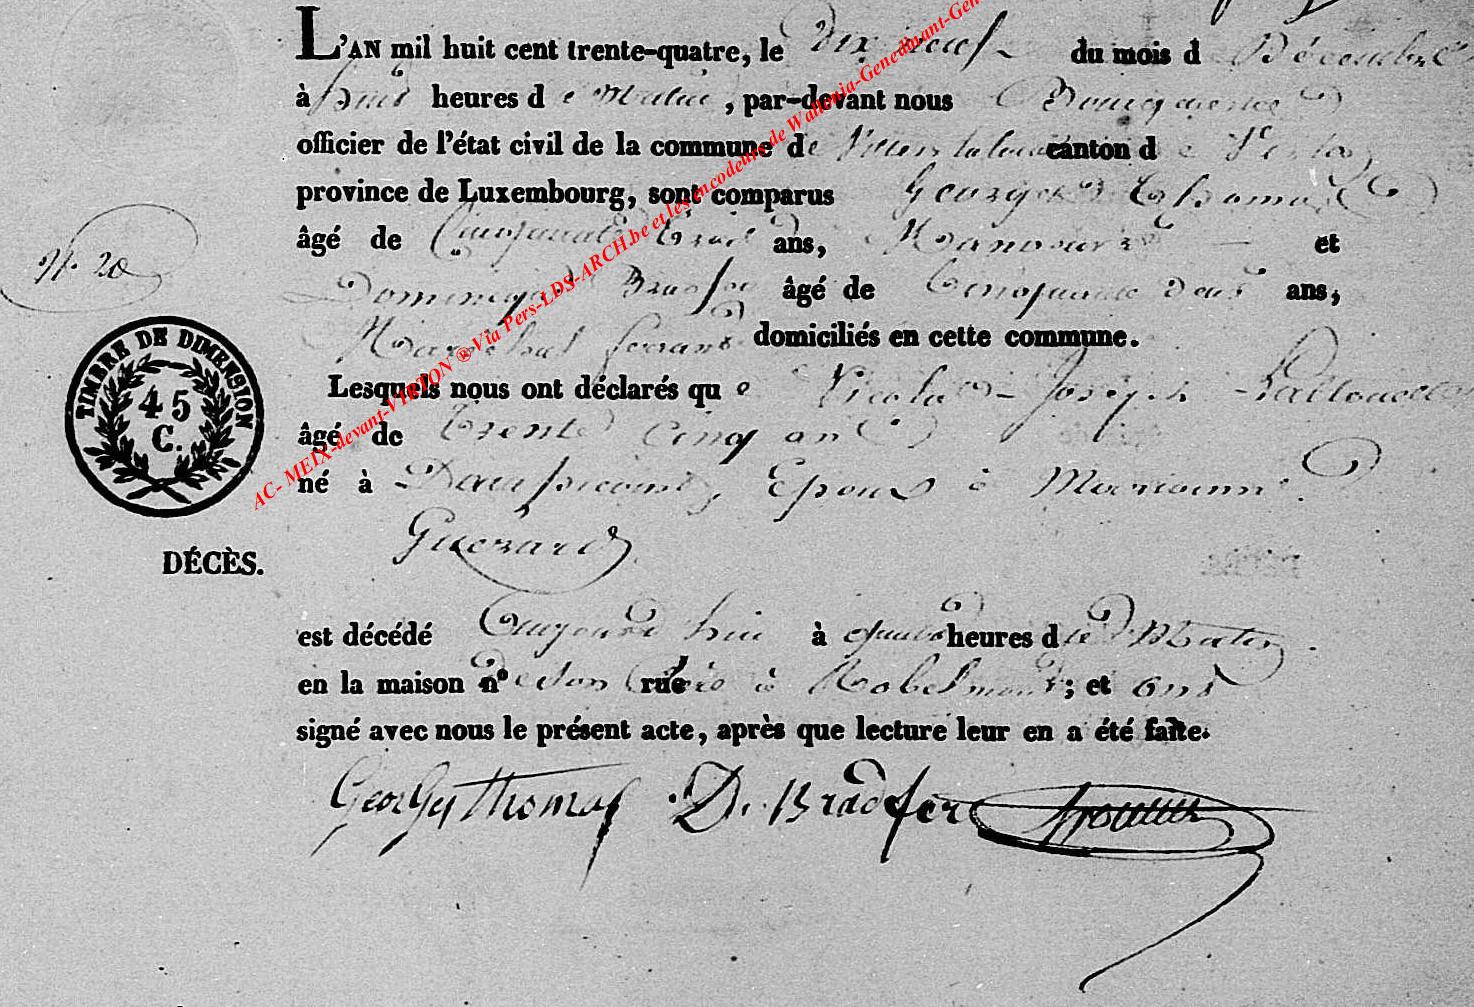 L'AN mil huit cent trente-quatre, le Dix neuf du mois d Décembre
à huit heures d e Matin, par-devant nous Bourgmestre
officier de l'état civil de la commune de Villers la loue canton d e Virton
province de Luxembourg, sont comparus Georges Thomas
âgé de Cinquante trois ans, Manoeuvre et
N° 20
Dominique Bradfer âgé de Cinquante deux ans,
Maréchal ferrant domiciliés en cette commune.
Lesquels nous ont déclarés qu e Nicolas Joseph
âgé de Trente Cinq ans
né à Epoux à Marianne
Guerard
TIMBRE DE DIMENSION
45
C.
DÉCÈS.
est décédé aujourd'hui à quatre heures d u Matin.
en la maison n° de son rue à Robelmont; et ont
signé avec nous le présent acte, après que lecture leur en a été faite.
Georges Thomas D. Bradfer
AC- MEIX-devant-VIRTON ® Via Pers-LDS-ARCH.be et les encodeurs de Wallonia-Genedinant-Gen